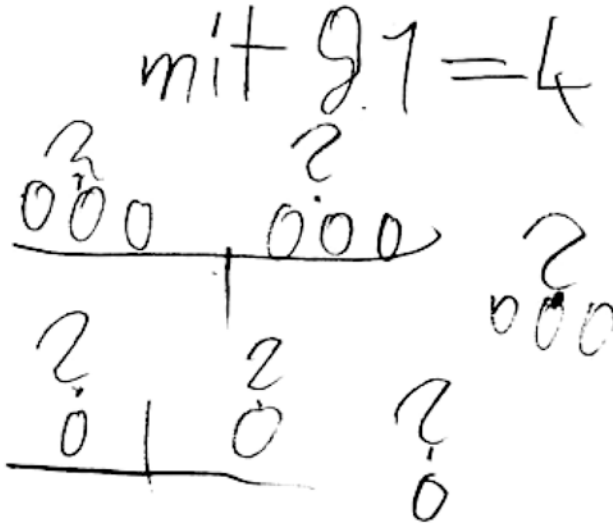 mit 9.1=4
? ?
000 000
?
000
? ?
0 0
?
0